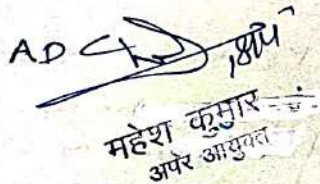 AD
महेश कुमार
अपर आयुक्त